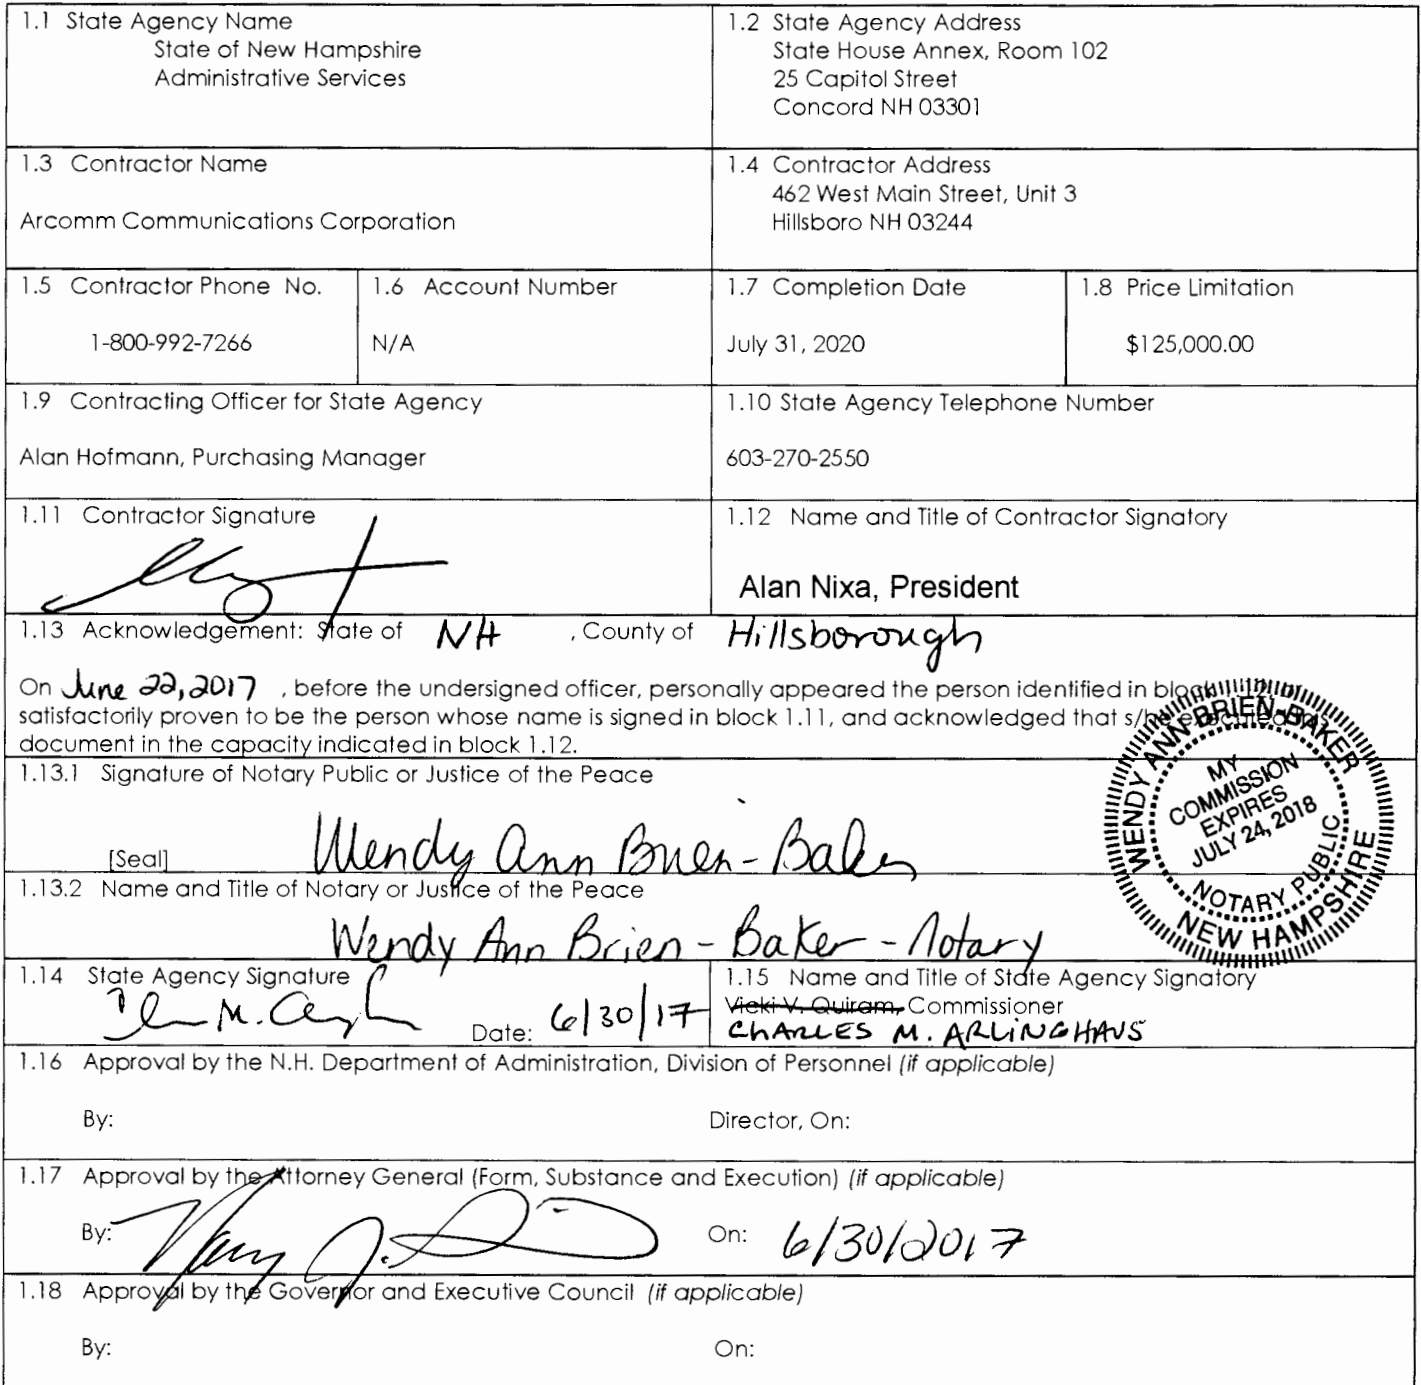 1.1 State Agency Name
State of New Hampshire
Administrative Services
1.2 State Agency Address
State House Annex, Room 102
25 Capitol Street
Concord NH 03301
1.3 Contractor Name
Arcomm Communications Corporation
1.4 Contractor Address
462 West Main Street, Unit 3
Hillsboro NH 03244
1.5 Contractor Phone No.
1-800-992-7266
1.6 Account Number
N/A
1.7 Completion Date
July 31, 2020
1.8 Price Limitation
$125,000.00
1.9 Contracting Officer for State Agency
Alan Hofmann, Purchasing Manager
1.10 State Agency Telephone Number
603-270-2550
1.11 Contractor Signature
1.12 Name and Title of Contractor Signatory
Alan Nixa, President
1.13 Acknowledgement: State of NH , County of Hillsborough
On June 22, 2017 , before the undersigned officer, personally appeared the person identified in block 1.12, or
satisfactorily proven to be the person whose name is signed in block 1.11, and acknowledged that s/he executed this
document in the capacity indicated in block 1.12.
1.13.1 Signature of Notary Public or Justice of the Peace
[Seal] Wendy Ann Brien-Baker
WENDY ANN BRIEN-BAKER
MY
COMMISSION
EXPIRES
JULY 24, 2018
NOTARY PUBLIC
NEW HAMPSHIRE
1.13.2 Name and Title of Notary or Justice of the Peace
Wendy Ann Brien - Baker - Notary
1.14 State Agency Signature
Date: 6/30/17
1.15 Name and Title of State Agency Signatory
Vicki V. Quiram, Commissioner
CHARLES M. ARLINGHAUS
1.16 Approval by the N.H. Department of Administration, Division of Personnel (if applicable)
By: Director, On:
1.17 Approval by the Attorney General (Form, Substance and Execution) (if applicable)
By: On: 6/30/2017
1.18 Approval by the Governor and Executive Council (if applicable)
By: On: